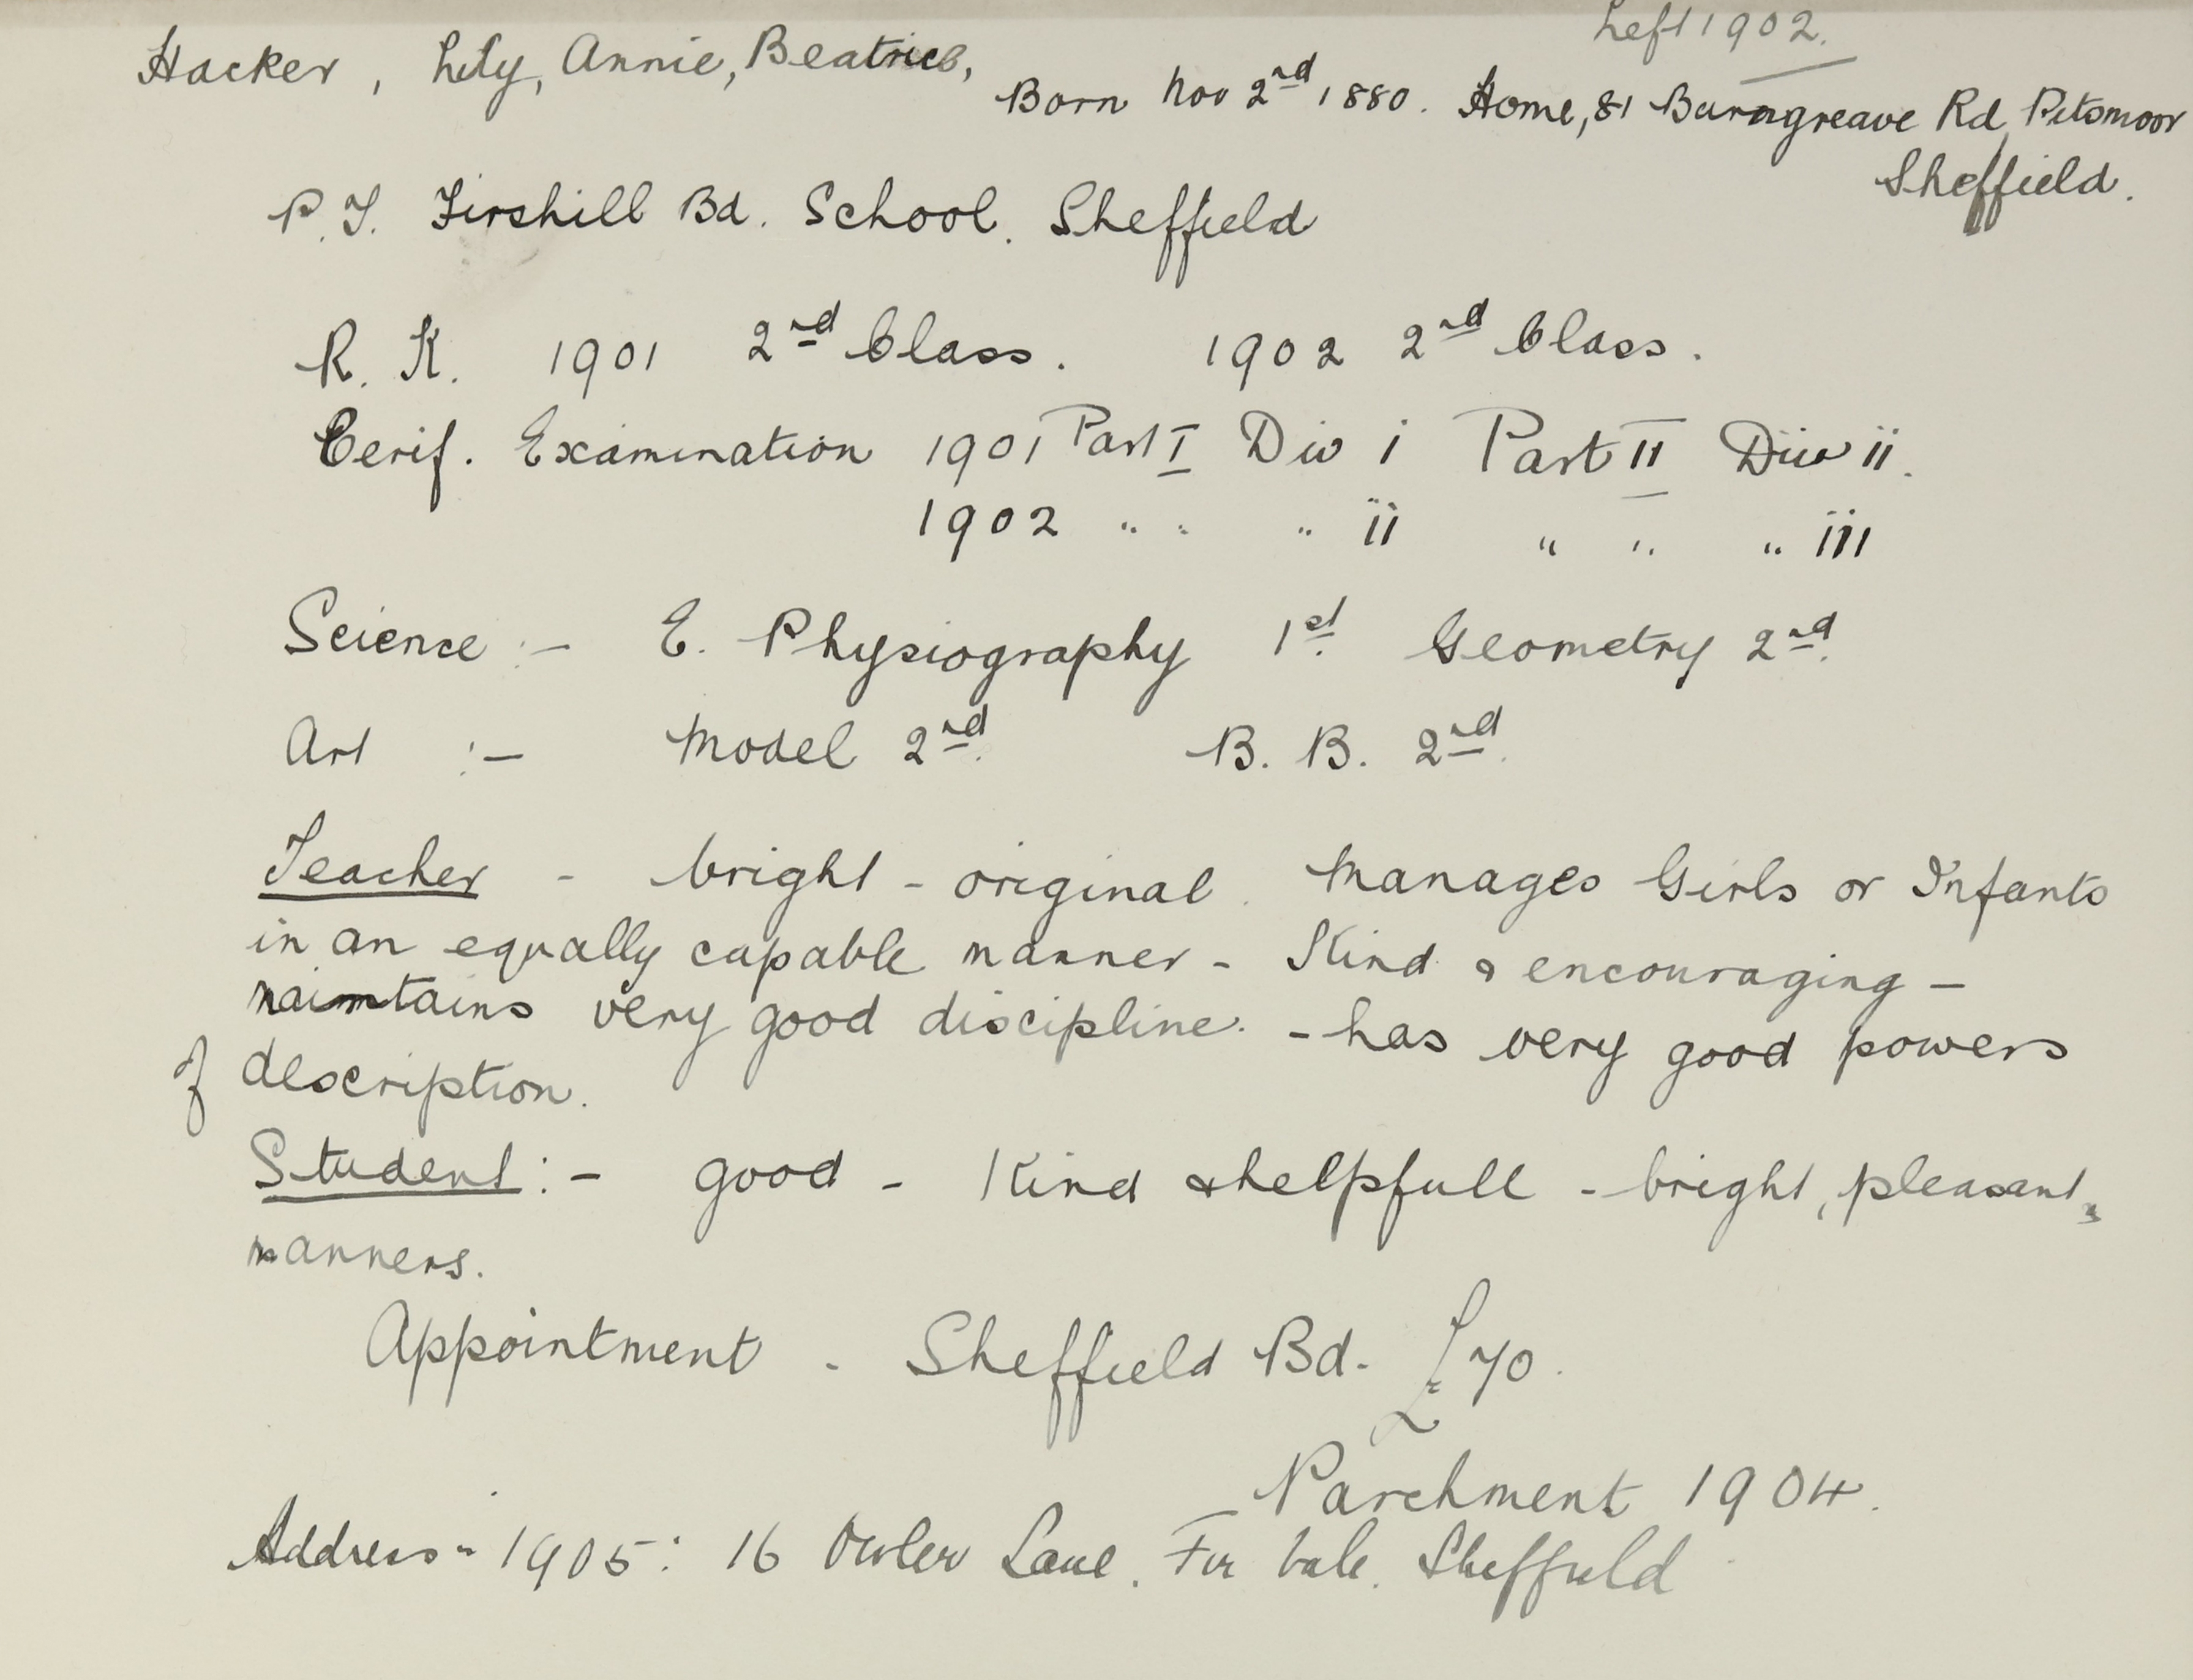 Left 1902.
Hacker, Lily, Annie, Beatrice, Born Nov 2nd 1880. Home, 81 Burngreave Rd Pitsmoor
Sheffield.
P.T. Firshill Bd. School. Sheffield
R. K. 1901 2nd Class. 1902 2nd Class.
Cerif. Examination 1901 Part I Div i Part II Div ii.
1902 " " " ii " " " iii
Science :- E. Physiography 1st. Geometry 2nd.
Art :- Model 2nd. B. B. 2nd.
Teacher - bright - original. Manages Girls or Infants
in an equally capable manner - Kind & encouraging -
maintains very good discipline. - has very good powers
of description.
Student :- good - Kind & helpfull - bright, pleasant,
manners.
Appointment - Sheffield Bd. £70.
Parchment 1904.
Address - 1905: 16 Owler Lane. Fir Vale. Sheffield